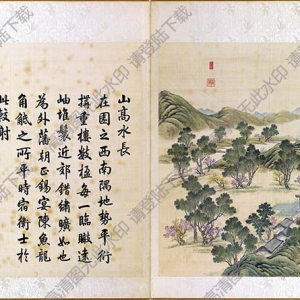 山髙水長
在園之西南隅地勢平衍
搆重樓數楹每一臨瞰遠
岫堆鬟近郊錯繡曠如也
為外藩朝正錫宴陳魚龍
角觝之所平時宿衛士於
此較射
高清图无此水印 请登陆下载